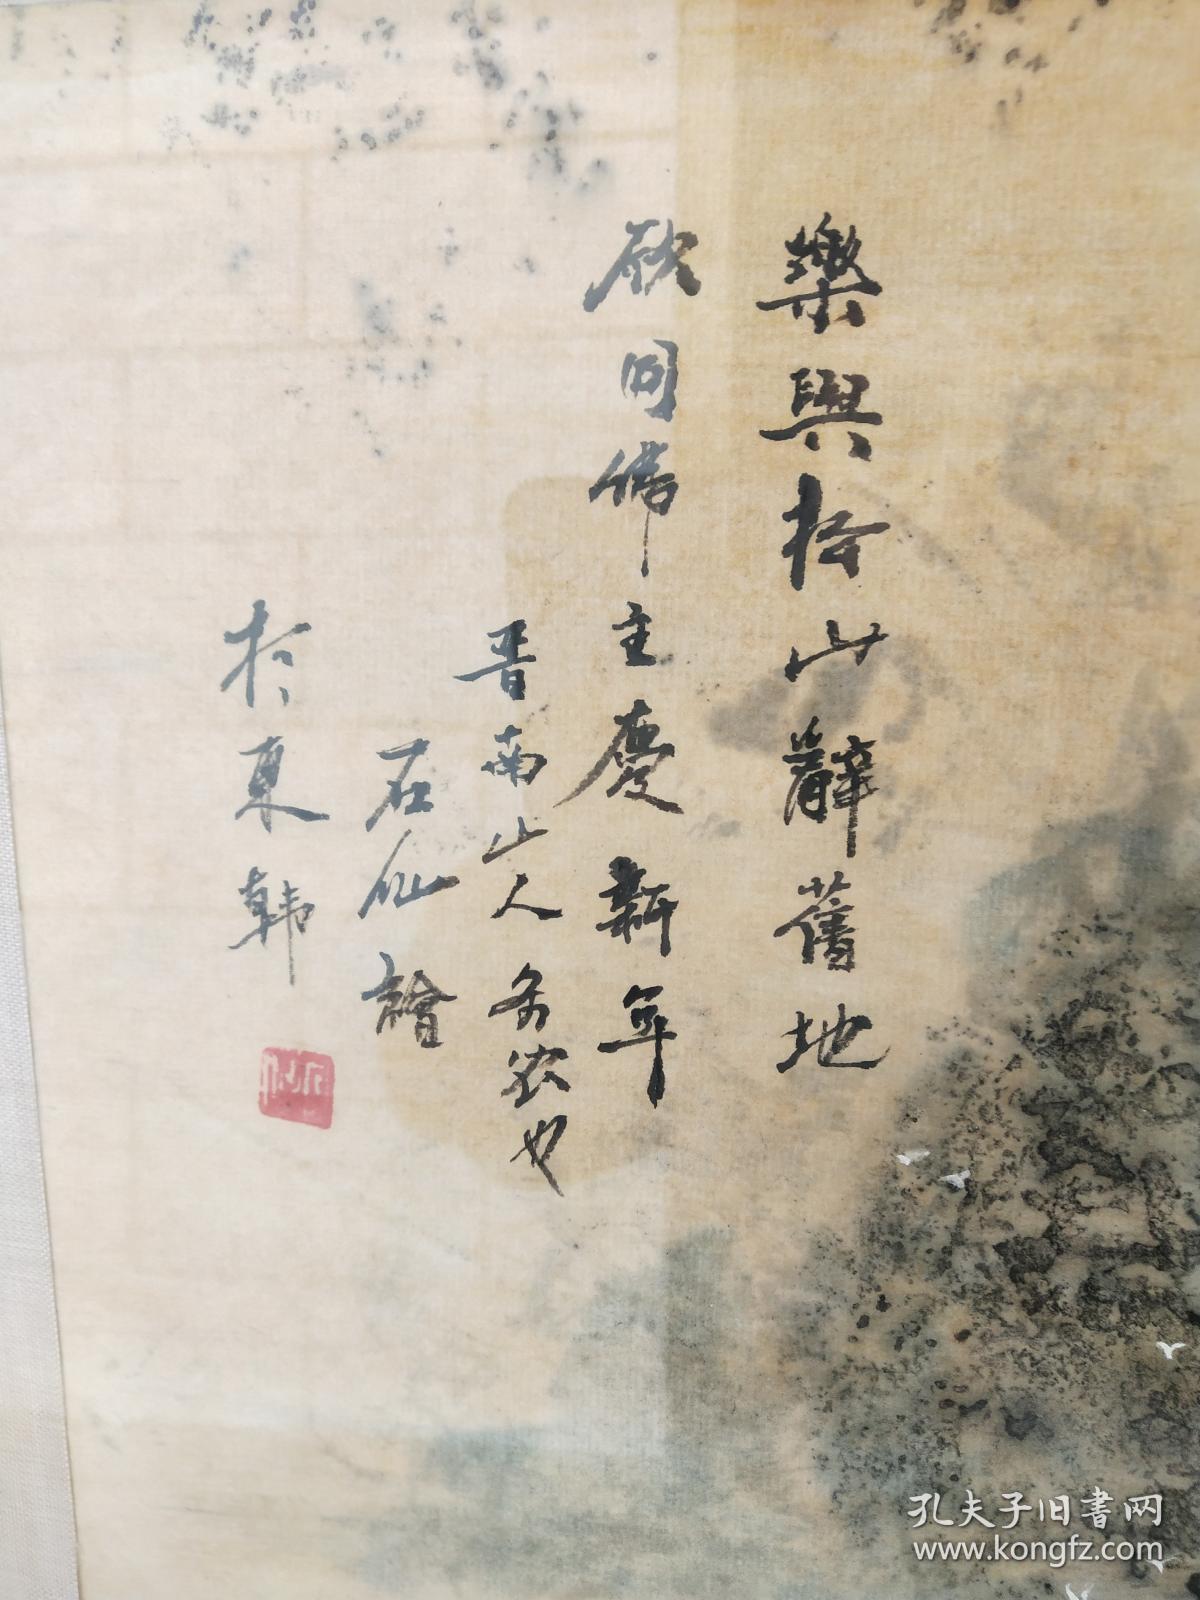 樂與拾山辭舊地
欣同佛主慶新年
晋南山人岳农也
石仙繪
於東韩
孔夫子旧书网
www.kongfz.com